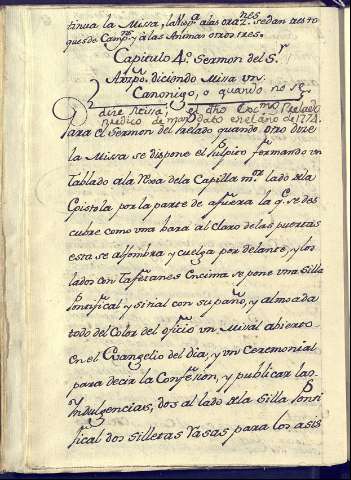 tinua la Missa, la Noq.ª a las oraz.nes se dan tres to
ques de Camp.na y à las Animas otros tres.
Capitulo 4º Sermon del S.r
Arzpo. diciendo Misa vn
Canonigo, o quando no se
dize Missa, el dho Exc.mo Prelado
predico de mandato en el año de 1774.
Para el Sermon del Prelado quando otro dize
la Missa se dispone el Pulpito formando vn
Tablado a la Rexa dela Capilla m.or lado dela
Epistola por la parte de afuera la q.e se des
cubre como una bara al claro delas puertas
esta se alfombra, y cuelga por delante, y los
lados con Tafetanes Encima se pone una Silla
Pontifical y sitial con su paño, y almoada
todo del Color del oficio vn Misal abierto
en el Evangelio del dia, y vn Ceremonial
para decir la Confesion, y publicar las
Yndulgencias, dos al lado dela Silla Ponti
fical dos silletas rasas para los asis